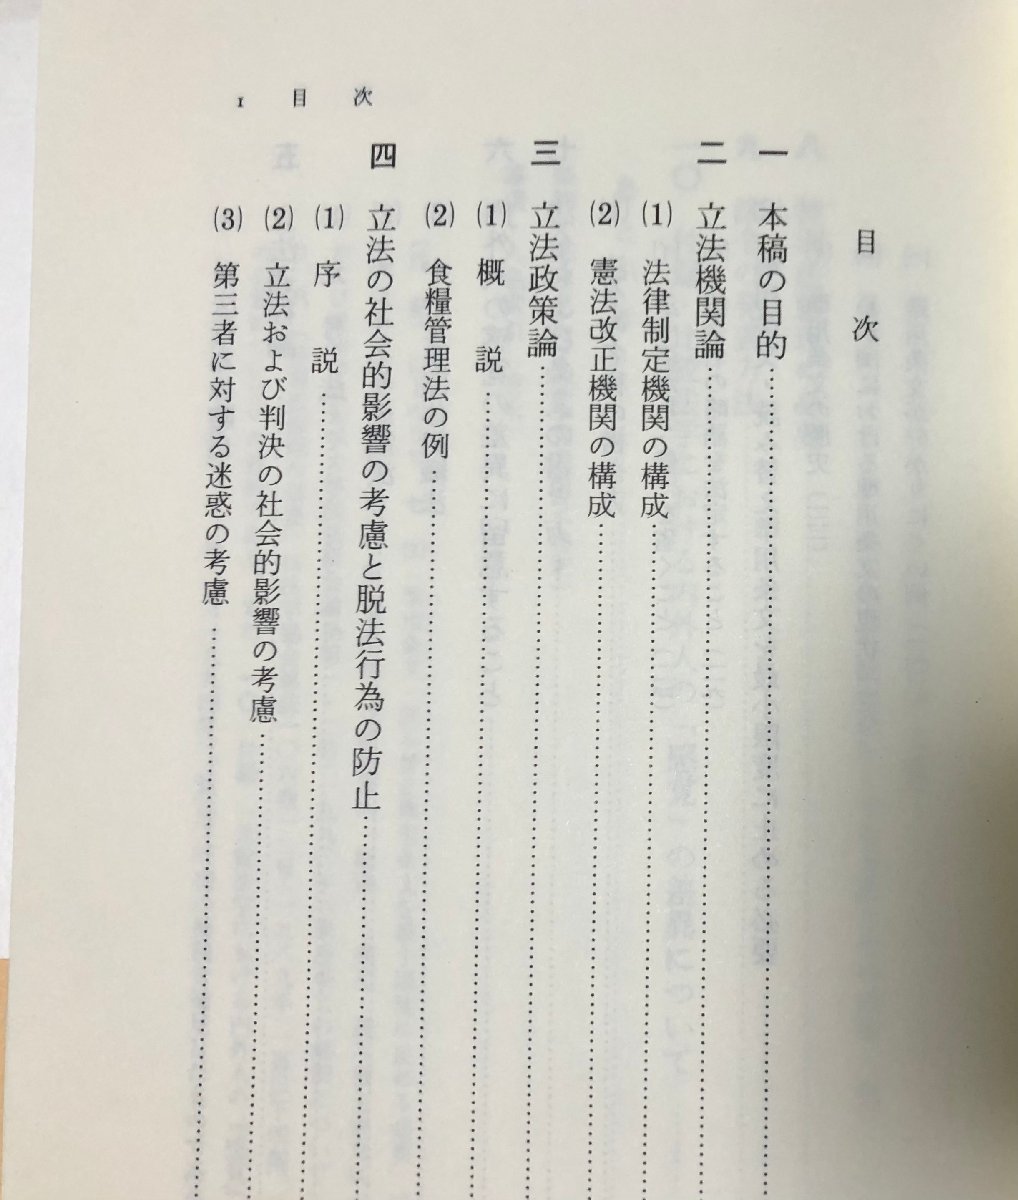 1 目次
目次
一 本稿の目的
二 立法機関論
(1) 法律制定機関の構成
(2) 憲法改正機関の構成
三 立法政策論
(1) 概説
(2) 食糧管理法の例
四 立法の社会的影響の考慮と脱法行為の防止
(1) 序説
(2) 立法および判決の社会的影響の考慮
(3) 第三者に対する迷惑の考慮